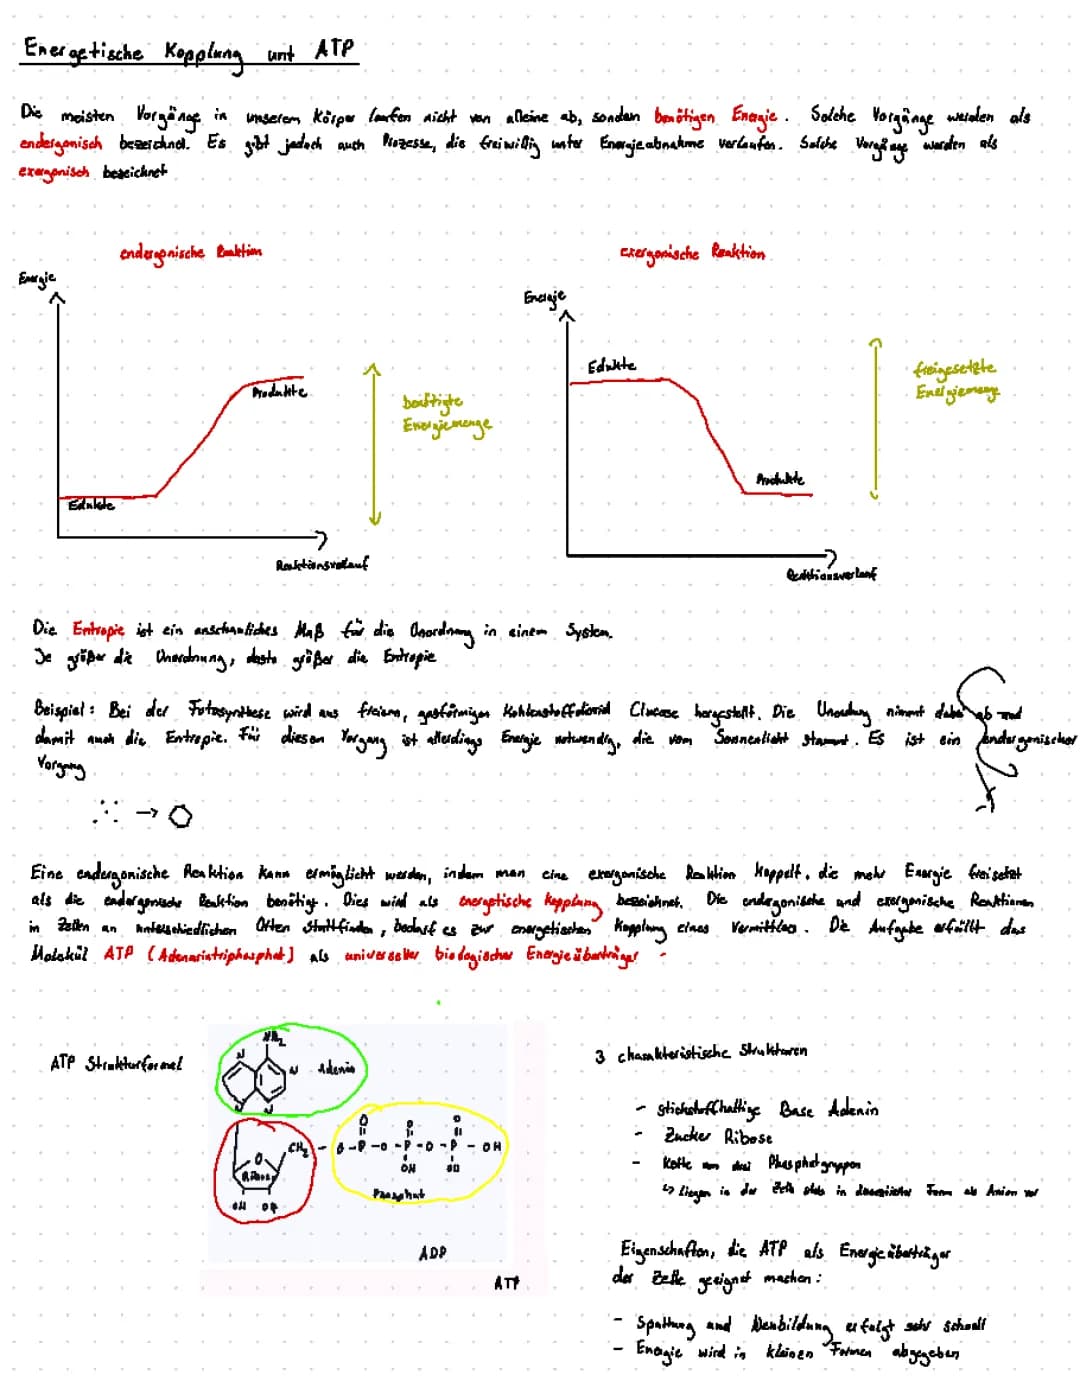 Energetische Kopplung unt ATP
Die meisten Vorgänge in unserem Körper laufen nicht von alleine ab, sondern benötigen Energie. Solche Vorgänge werden als
endergonisch bezeichnet. Es gibt jedoch auch Prozesse, die freiwillig unter Energieabnahme verlaufen. Solche Vorgänge werden als
exergonisch bezeichnet
endergonische Reaktion
exergonische Reaktion
Energie
Energie
Edukte
Produkte
benötigte
Energiemenge
freigesetzte
Energiemenge
Edukte
Produkte
Reaktionsverlauf
Reaktionsverlauf
Die Entropie ist ein anschauliches Maß für die Unordnung in einem System.
Je größer die Unordnung, desto größer die Entropie
Beispiel: Bei der Fotosynthese wird aus freiem, gasförmigen Kohlenstoffdioxid Glucose hergestellt. Die Unordnung nimmt dabei ab und
damit auch die Entropie. Für diesen Vorgang ist allerdings Energie notwendig, die vom Sonnenlicht stammt. Es ist ein endergonischer
Vorgang
Eine endergonische Reaktion kann ermöglicht werden, indem man eine exergonische Reaktion koppelt, die mehr Energie freisetzt
als die endergonische Reaktion benötigt. Dies wird als energetische Kopplung bezeichnet. Die endergonische und exergonische Reaktionen
in Zellen an unterschiedlichen Orten stattfinden, bedarf es zur energetischen Kopplung eines Vermittlers. Die Aufgabe erfüllt das
Molekül ATP (Adenosintriphosphat) als universeller biologischer Energieüberträger
ATP Strukturformel
NH2
N
N
N
N
Adenin
CH2 - O - P - O - P - O - P - OH
O
O
O
OH
OH
O
Ribose
OH OH
Phosphat
ADP
ATP
3 charakteristische Strukturen
- stickstoffhaltige Base Adenin
- Zucker Ribose
- Kette aus drei Phosphatgruppen
↳ liegen in der Zelle stets in Form als Anion vor
Eigenschaften, die ATP als Energieüberträger
der Zelle geeignet machen:
- Spaltung und Neubildung erfolgt sehr schnell
- Energie wird in kleinen Formen abgegeben